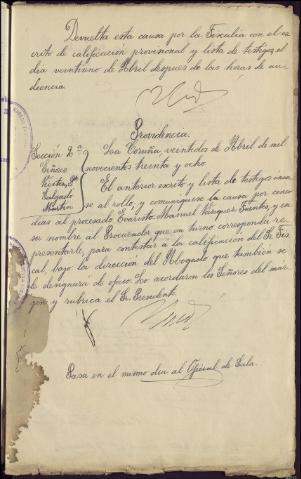 Devuelta esta causa por la Fiscalía con el es-
crito de calificación provisional y lista de testigos el
día veintiuno de Abril después de las horas de au-
diencia.
Providencia.
Sección 2ª
Señores
Victor, Pte
Salgado
La Coruña, veintidos de Abril de mil
novecientos treinta y ocho.
El anterior escrito y lista de testigos úna-
se al rollo, y comuníquese la causa por cinco
dias al procesado Evaristo Manuel Vazquez Fuentes, y en
su nombre al Procurador que en turno corresponda re-
presentarle, para contestar a la calificación del Sr Fis-
cal, bajo la dirección del Abogado que también se
le designará de oficio. Lo acordaron los Señores del már-
gen y rubrica el Sr. Presidente.
Pasa en el mismo dia al Oficial de Sala.